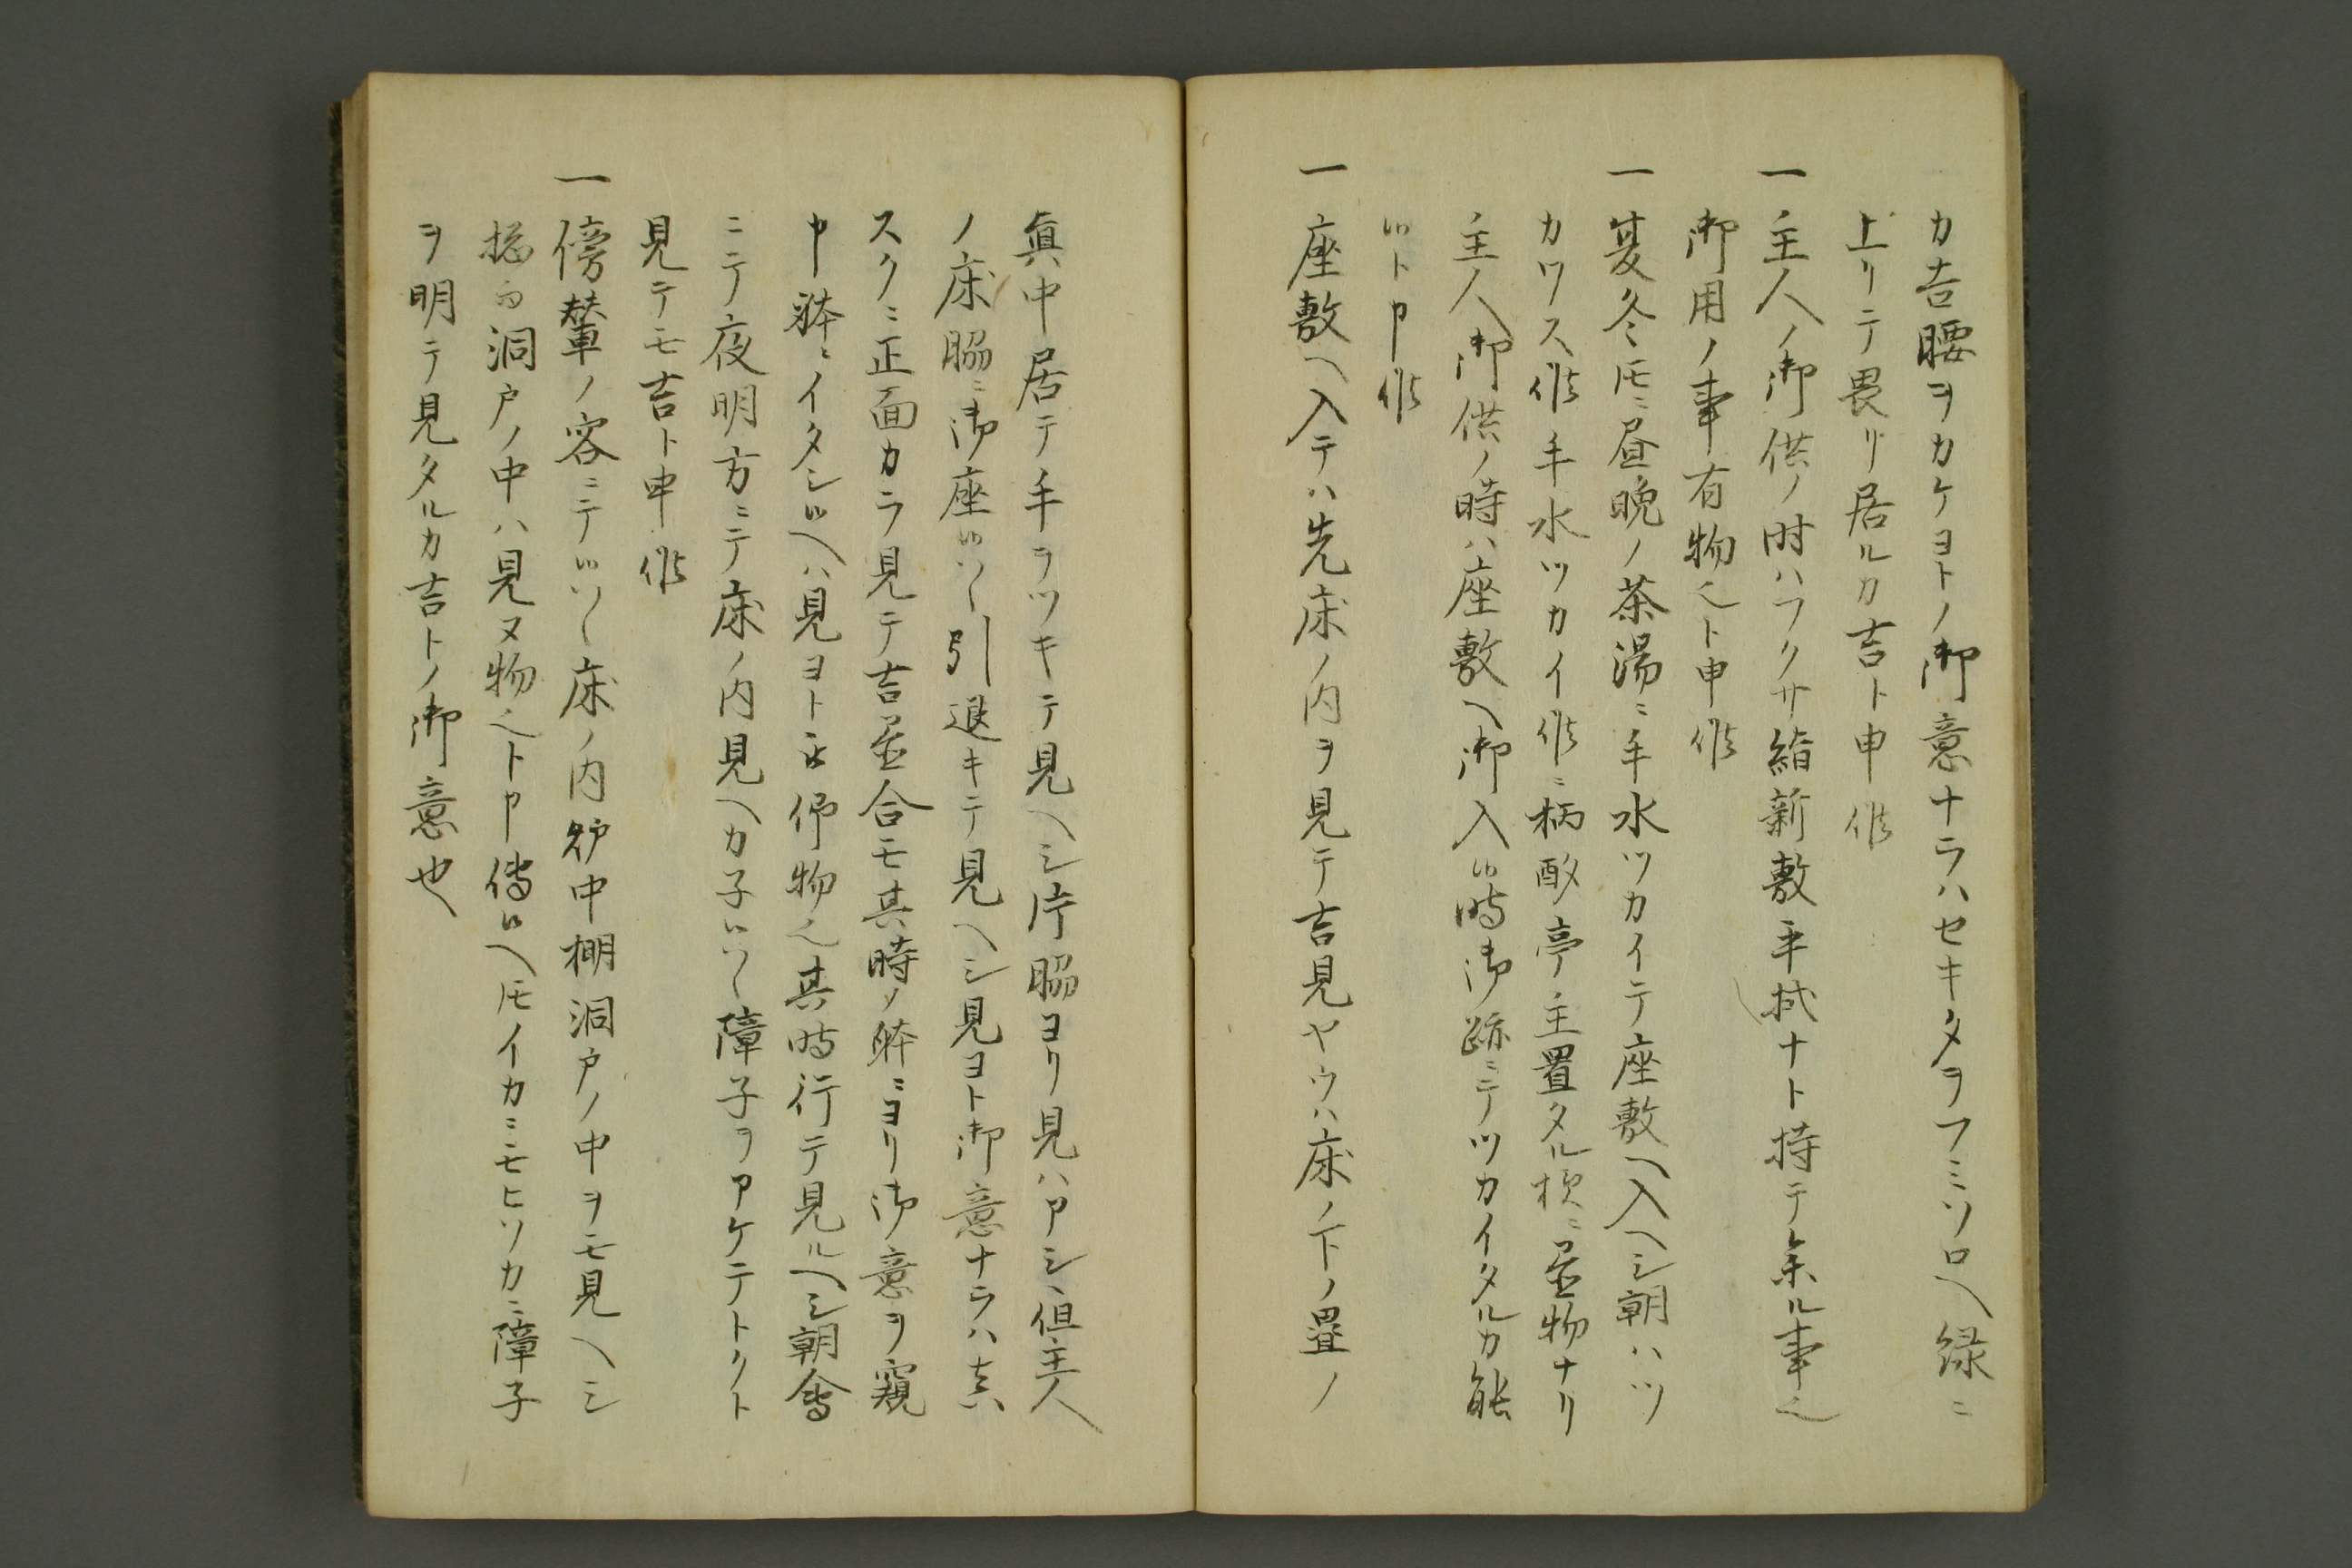 カ吉腰ヲカケヨトノ御意ナラハセキタヲフミソロヘ縁ニ
上リテ畏リ居ルカ吉ト申候
一主人ノ御供ノ時ハフクサ鼻新敷手拭ナト持テ参ル事也
御用ノ事有物也ト申候
一夏冬トモニ昼晩ノ茶湯ニ手水ツカイテ座敷ヘ入ヘシ朝ハツ
カワス候手水ツカイ候ニ柄酌亭主置タル様ニ置物ナリ
主人御供ノ時ハ座敷ヘ御入候時御跡ニテツカイタルカ能
候ト申候
一座敷ヘ入テハ先床ノ内ヲ見テ吉見ヤウハ床ノ下ノ畳ノ
真中居テ手ヲツキテ見ヘシ片脇ヨリ見ハアシヽ但主人
ノ床脇ニ御座候ハヽ引退キテ見ヘシ見ヨト御意ナラハ真
スクニ正面カラ見テ吉置合モ其時ノ躰ニヨリ御意ヲ窺
申躰ニイタシ候ヘハ見ヨト被仰物也其時行テ見ルヘシ朝會
ニテ夜明方ニテ床ノ内見ヘカネ候ハヽ障子ヲアケテトクト
見テモ吉ト申候
一傍輩ノ客ニテ候ハヽ床ノ内炉中棚洞戸ノ中ヲモ見ヘシ
惣而洞戸ノ中ハ見ヌ物也ト申傳候ヘトモイカニモヒソカニ障子
ヲ明テ見タルカ吉トノ御意也